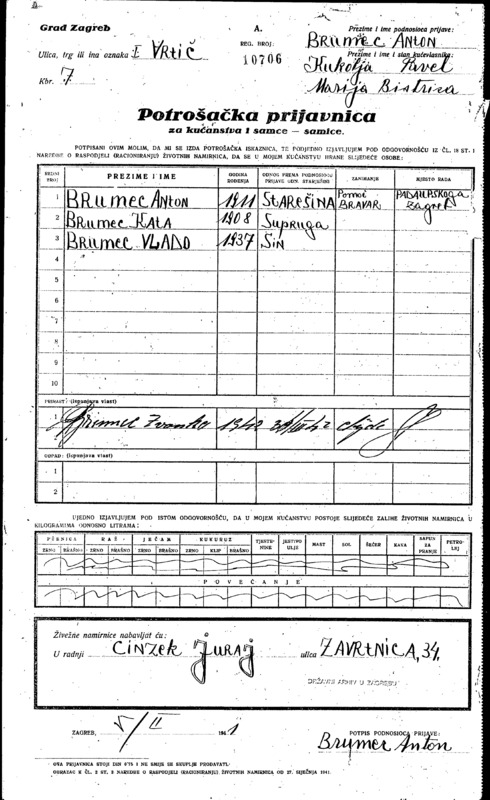 Grad Zagreb
A.
Prezime i ime podnosioca prijave:
Ulica, trg ili ina oznaka I VRTIČ
REG. BROJ:
BRUMEC ANTON
10706
Prezime i ime i stan kućevlasnika:
Kbr. 7
Kukolja Pavel
Marija Bistrica
Potrošačka prijavnica
za kućanstva i samce — samice.
POTPISANI OVIM MOLIM, DA MI SE IZDA POTROŠAČKA ISKAZNICA, TE PODJEDNO IZJAVLJUJEM POD ODGOVORNOŠĆU IZ ČL. 18 ST. 1
NAREDBE O RASPODJELI (RACIONIRANJU) ŽIVOTNIH NAMIRNICA, DA SE U MOJEM KUĆANSTVU HRANE SLIJEDEĆE OSOBE:
REDNI BROJ PREZIME I IME GODINA ROĐENJA ODNOS PREMA PODNOSIOCU PRIJAVE ODN. STARJEŠINI ZANIMANJE MJESTO RADA
1 BRUMEC ANTON 1911 STAREŠINA Pomoć BRAVAR Zagreb
2 BRUMEC KATA 1908 Supruga
3 BRUMEC VLADO 1937 SIN
4
5
6
7
8
9
10
PRIRAST: (ispunjava vlast)
1 Brumec Zvonko 1942
2
OTPAD: (ispunjava vlast)
1
2
UJEDNO IZJAVLJUJEM POD ISTOM ODGOVORNOŠĆU, DA U MOJEM KUĆANSTVU POSTOJE SLIJEDEĆE ZALIHE ŽIVOTNIH NAMIRNICA U
KILOGRAMIMA ODNOSNO LITRAMA:
PŠENICA RAŽ JEČAM KUKURUZ TJESTENINE JESTIVO ULJE MAST SOL ŠEĆER KAVA SAPUN ZA PRANJE PETROLEJ
ZRNO BRAŠNO ZRNO BRAŠNO ZRNO BRAŠNO ZRNO KLIP BRAŠNO
POVEĆANJE
Živežne namirnice nabavljat ću:
U radnji CINZEK JURAJ ulica ZAVRTNICA, 34,
DRŽAVNI ARHIV U ZAGREBU
ZAGREB, 5/II 1941
POTPIS PODNOSIOCA PRIJAVE:
Brumec Anton
OVA PRIJAVNICA STOJI DIN 0.75 I NE SMIJE SE SKUPLJE PRODAVATI.
OBRAZAC K ČL. 2 ST. 3 NAREDBE O RASPODJELI (RACIONIRANJU) ŽIVOTNIH NAMIRNICA OD 27. SIJEČNJA 1941.